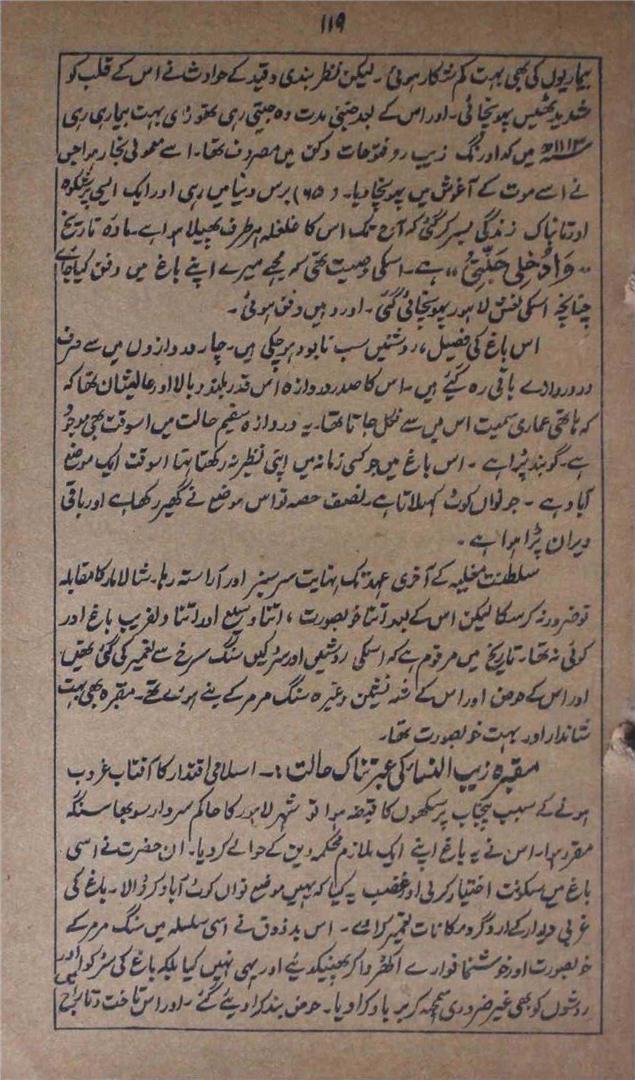 ۱۱۹
بیماریوں کی بھی بہت کم شکار ہوئی۔ لیکن نظر بندی و قید کے حوادث نے اس کے قلب کو
شدید ٹھیس پہونچائی۔ اور اس کے بعد جتنی مدت وہ جیتی رہی تھوڑی بہت بیمار ہی رہی
۱۱۱۳ھ میں کہ اورنگ زیب رو فتوحات دکن میں مصروف تھا۔ اسے معمولی بخار ہوا جس
نے اسے موت کے آغوش میں پہونچا دیا۔ (۶۵) برس دنیا میں رہی اور ایک ایسی پرشکوہ
اور تابناک زندگی بسر کر گئی کہ آج تک اس کا غلغلہ ہر طرف پھیلا ہوا ہے۔ مادہ تاریخ
،،وَادْخُلِی جَنَّتِی،، ہے۔ اسکی وصیت تھی کہ مجھے میرے اپنے باغ میں دفن کیا جائے
چنانچہ اسکی نعش لاہور پہونچائی گئی۔ اور وہیں دفن ہوئی۔
اس باغ کی فصیل، روشنیں سب نابود ہو چکی ہیں۔ چار دروازوں میں سے صرف
دو دروازے باقی رہ گئے ہیں۔ اس کا صدر دروازہ اس قدر بلند و بالا اور عالیشان تھا کہ
کہ ہاتھی عماری سمیت اس میں سے نکل جاتا تھا۔ یہ دروازہ سقیم حالت میں اسوقت بھی موجود
ہے۔ گو بند پڑا ہے۔ اس باغ میں جو کسی زمانہ میں اپنی نظیر نہ رکھتا تھا اسوقت ایک موضع
آباد ہے۔ جو نواں کوٹ کہلاتا ہے۔ نصف حصہ تو اس موضع نے گھیر رکھا ہے اور باقی
ویران پڑا ہوا ہے۔
سلطنت مغلیہ کے آخری عہد تک نہایت سرسبز اور آراستہ رہا۔ شالامار کا مقابلہ
تو ضرور نہ کر سکا لیکن اس کے بعد اتنا خوبصورت، اتنا وسیع اور اتنا دلفریب باغ اور
کوئی نہ تھا۔ تاریخ میں مرقوم ہے کہ اسکی روشیں اور سڑکیں سنگ سرخ سے تعمیر کی گئی تھیں
اور اس کے حوض اور اس کے شہ نشین وغیرہ سنگ مرمر کے بنے ہوئے تھے۔ مقبرہ بھی بہت
شاندار اور بہت خوبصورت تھا۔
مقبرہ زیب النسا کی عبرتناک حالت:۔ اسلامی اقتدار کا آفتاب غروب
ہونے کے سبب پنجاب پر سکھوں کا قبضہ ہوا تو شہر لاہور کا حاکم سردار سوبھا سنگھ
مقرر ہوا۔ اس نے یہ باغ اپنے ایک ملازم محکم دین کے حوالے کر دیا۔ ان حضرت نے اسی
باغ میں سکونت اختیار کر لی اور غضب یہ کیا کہ یہیں موضع نواں کوٹ آباد کر ڈالا۔ باغ کی
غربی دیوار کے ارد گرد مکانات تعمیر کرائے۔ اس بدذوق نے اسی سلسلہ میں سنگ مرمر کے
خوبصورت اور خوشنما فوارے اکھڑوا کر پھینک دیئے اور یہی نہیں کیا بلکہ باغ کی سڑکوں اور
روشوں کو بھی غیر ضروری سمجھ کر برباد کرا دیا۔ حوض بند کرا دیئے گئے۔ اور اس تاخت و تاراج